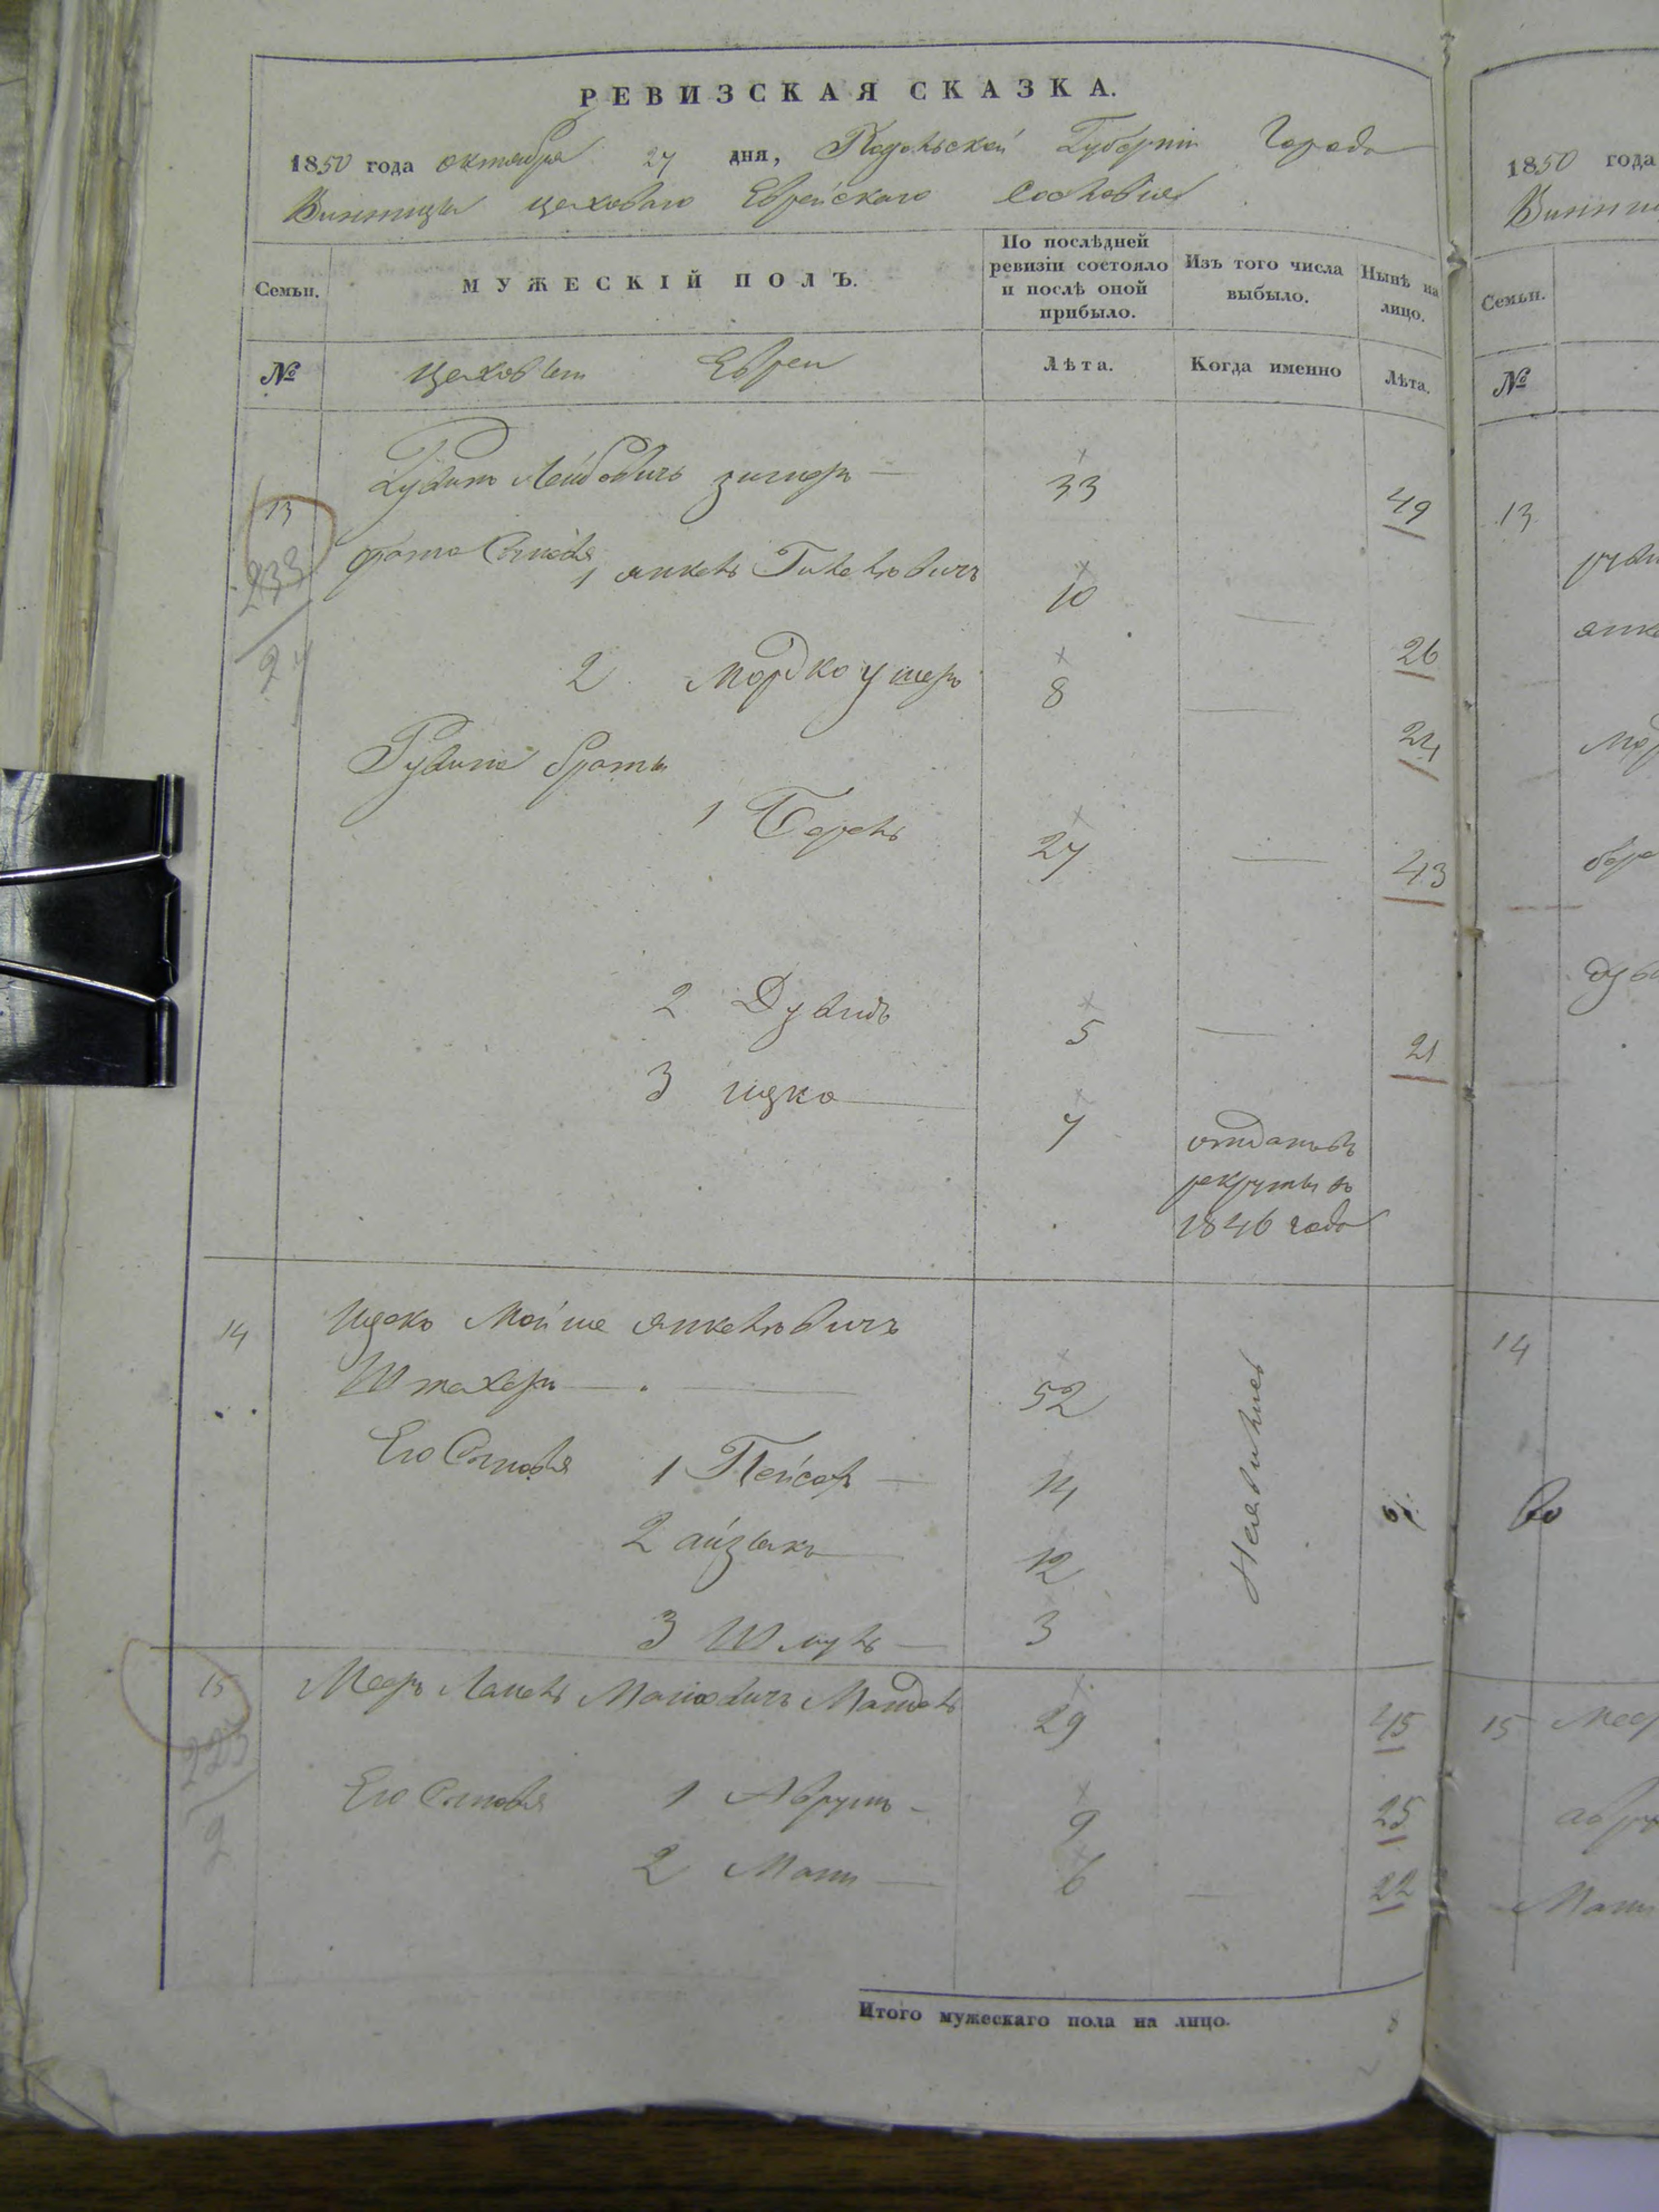 РЕВИЗСКАЯ СКАЗКА.
1850 года октября 27 дня, Подольской Губерніи Города
Винницы цеховаго Еврейскаго Сословія
Семьи.
МУЖЕСКІЙ ПОЛЪ.
По послѣдней ревизіи состояло и послѣ оной прибыло.
Изъ того числа выбыло.
Нынѣ на лицо.
№ цеховые Евреи Лѣта. Когда именно Лѣта.
13 Рувинъ Лейбовичъ 33 49
233
24
брата Сыновья 1 янкель 10 26
2 Мордко ушеръ 8 24
Рувина братья
1 Берель 27 43
2 Дувидъ 5 21
3 ицко 7 отданъ въ
рекруты въ
1846 года
14 Ицко Мойше янкельовичъ
Штахеръ 52
Его Сыновья 1 Пейсахъ 14
2 айзыкъ 12
3 Шмуль 3
Неявились
15 Мееръ 29 45
223
2
Его Сыновья 1 Аврумъ 9 25
2 Мани 6 22
Итого мужескаго пола на лицо. 8
1850 года
Семьи.
№
13
14
15 Меер